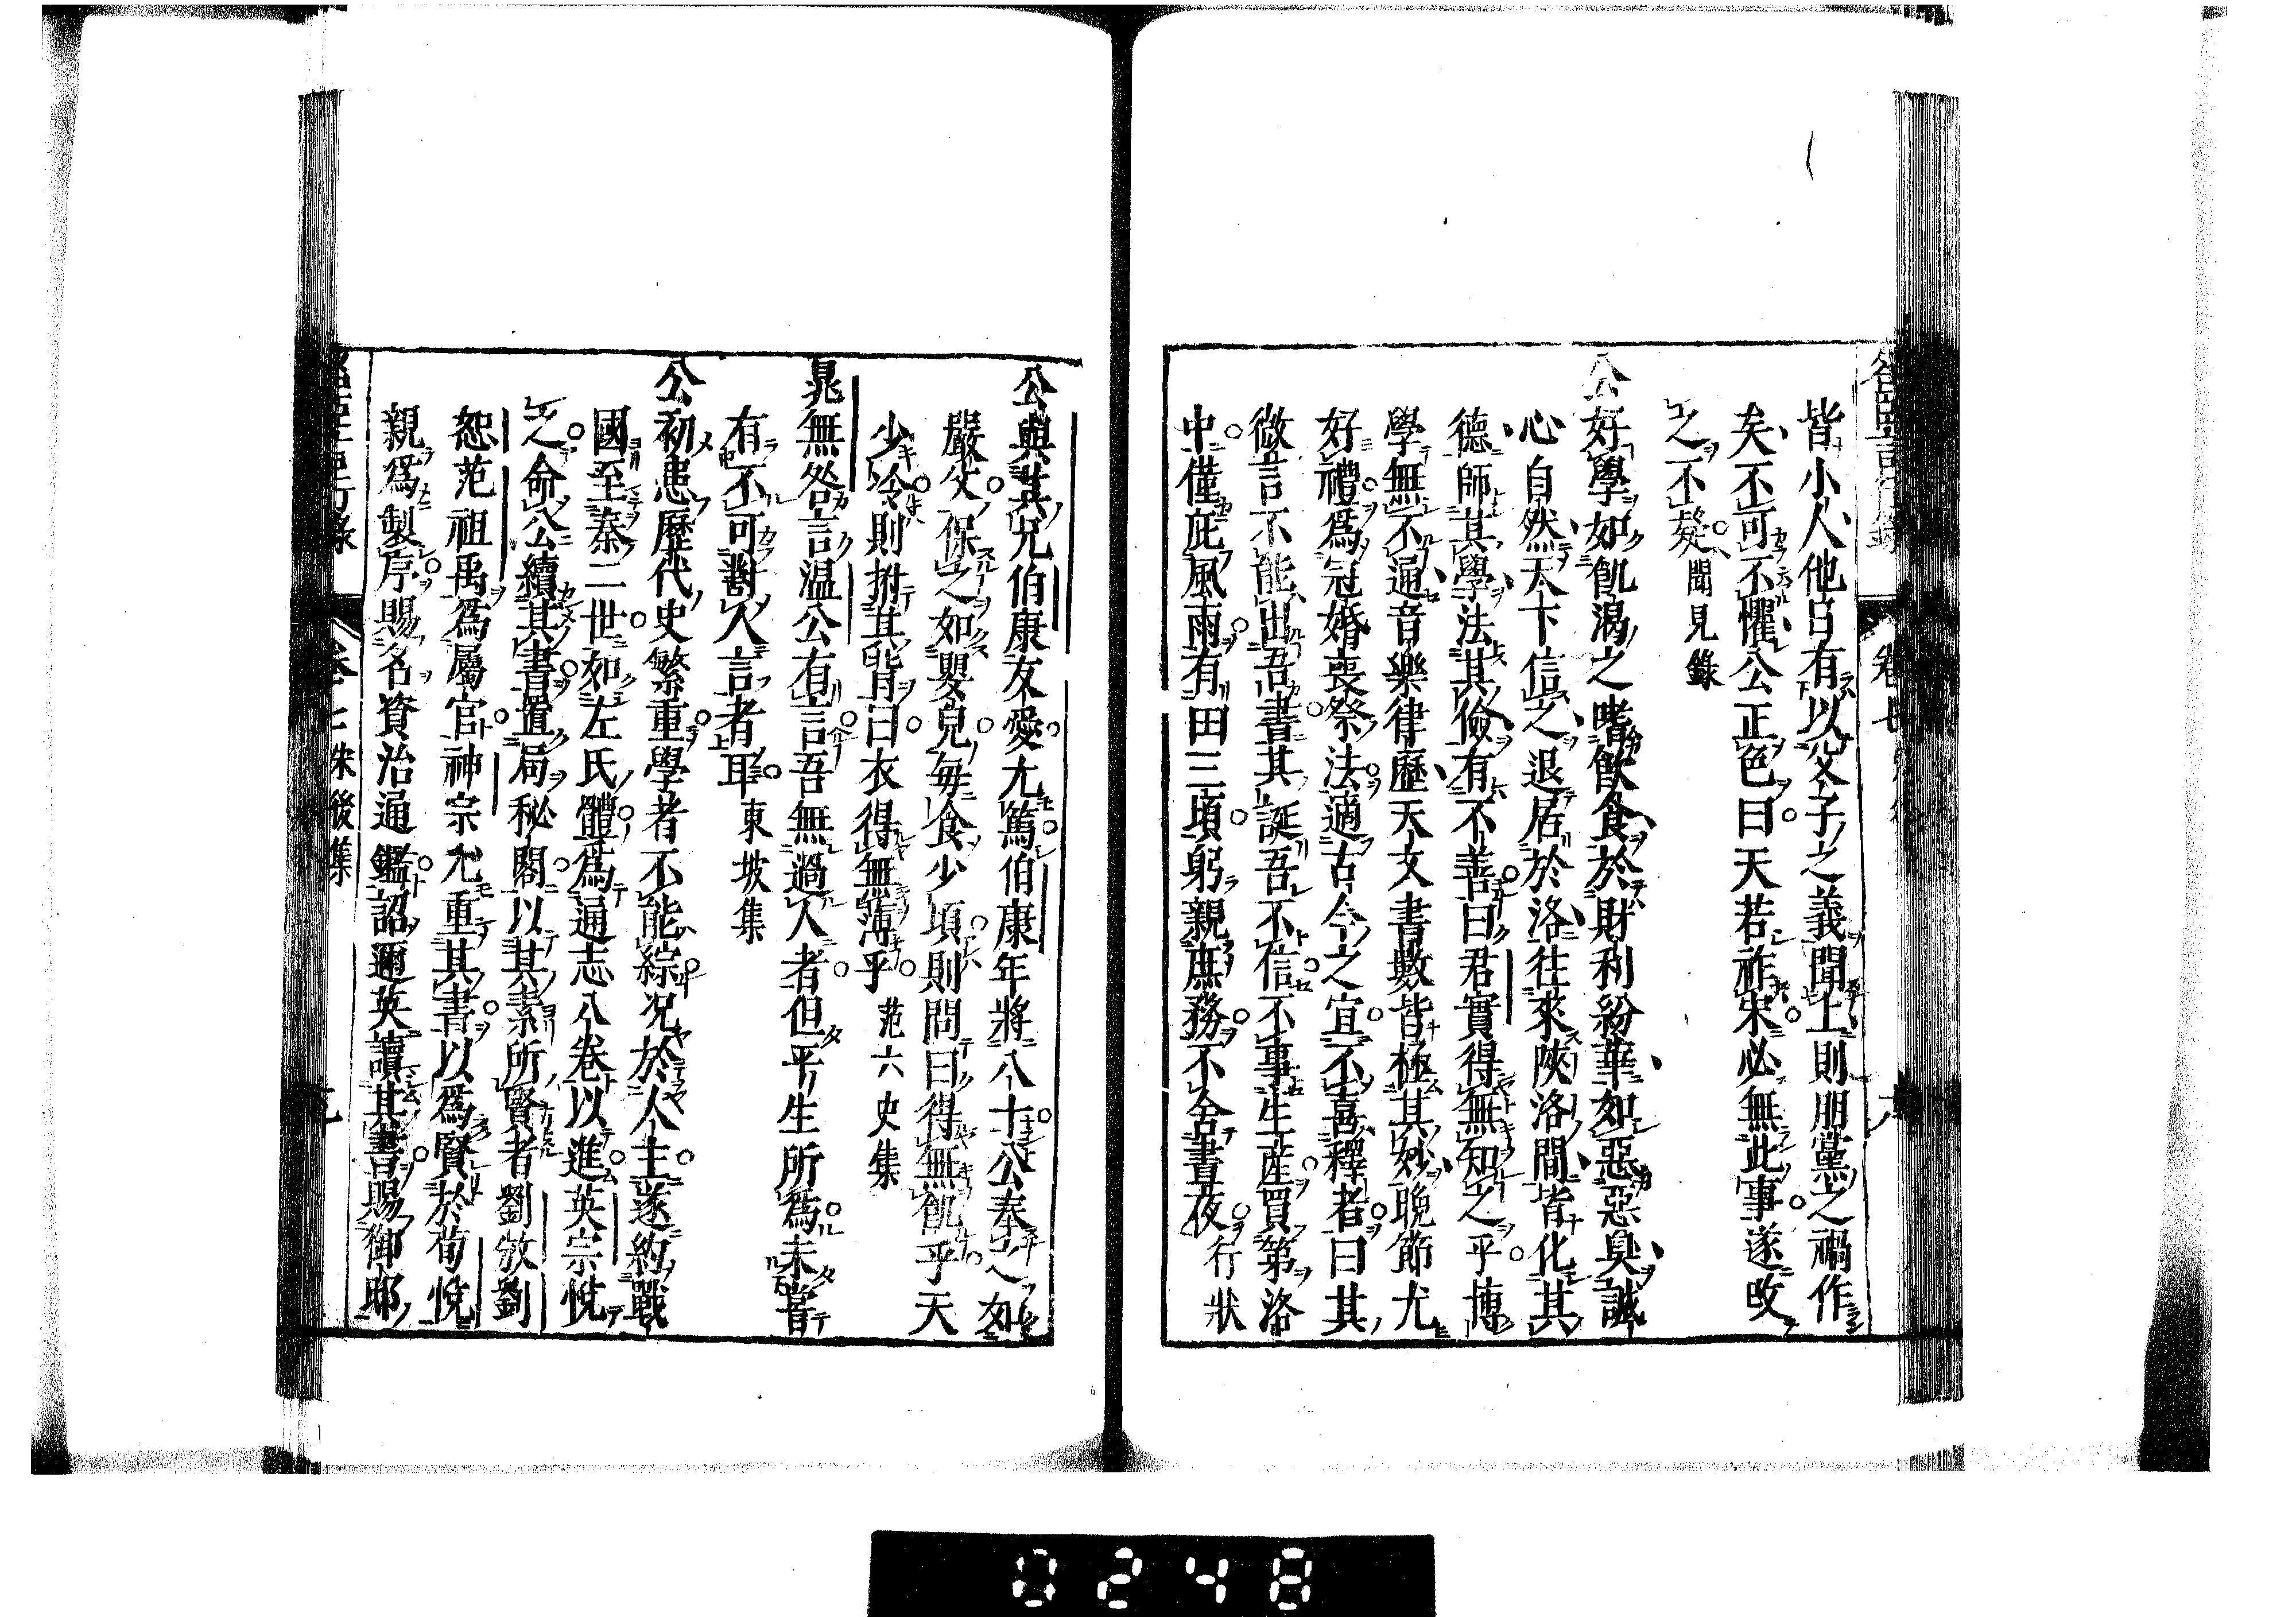 皆小人他日有以父子之義聞上則朋黨之禍作
矣不可不懼公正色曰天若祚宋必無此事遂改
之不疑 聞見錄
公好學如飢渴之嗜飲食於財利紛華如惡惡臭誠
心自然天下信之退居於洛往來陝洛間皆化其
德師其學法其儉有不善曰君實得無知之乎博
學無不通音樂律歷天文書數皆極其妙晚節尤
好禮爲冠婚喪祭法適古今之宜不喜釋者曰其
微言不能出吾書其誕吾不信不事生産買第洛
中僅庇風雨有田三頃躬親庶務不舍晝夜 行狀
公與其兄伯康友愛尤篤伯康年將八十公奉之如
嚴父保之如嬰兒每食少頃則問曰得無飢乎天
少冷則拊其背曰衣得無薄乎 范六史集
晁無咎言温公有言吾無過人者但平生所爲未嘗
有不可對人言者耳 東坡集
公初患歷代史繁重學者不能綜况於人主遂約戰
國至秦二世如左氏體爲通志八卷以進英宗悅
之命公續其書置局秘閣以其素所賢者劉攽劉
恕范祖禹爲屬官神宗尤重其書以爲賢於荀悅
親爲製序賜名資治通鑑詔邇英讀其書賜御邸
卷七 朱後集
0248